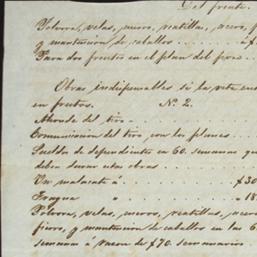 Del frente.
Polvora, velas, mecos, reatillas, acero, f
y mantencion de caballos
Para dos frentes en el plan del
Obras indispensables si la veta
en frutos. No. 2.
Ahonde del tiro
Comunicacion del tiro con los planes
Sueldos de dependientes en 60 semanas que
deben durar estas obras
Un malacate á $30
Fragua " " 18
Polvora, velas, mecos, reatillas, acero
fierro, y mantencion de caballos en las 6
semanas á razon de $70 semanarios